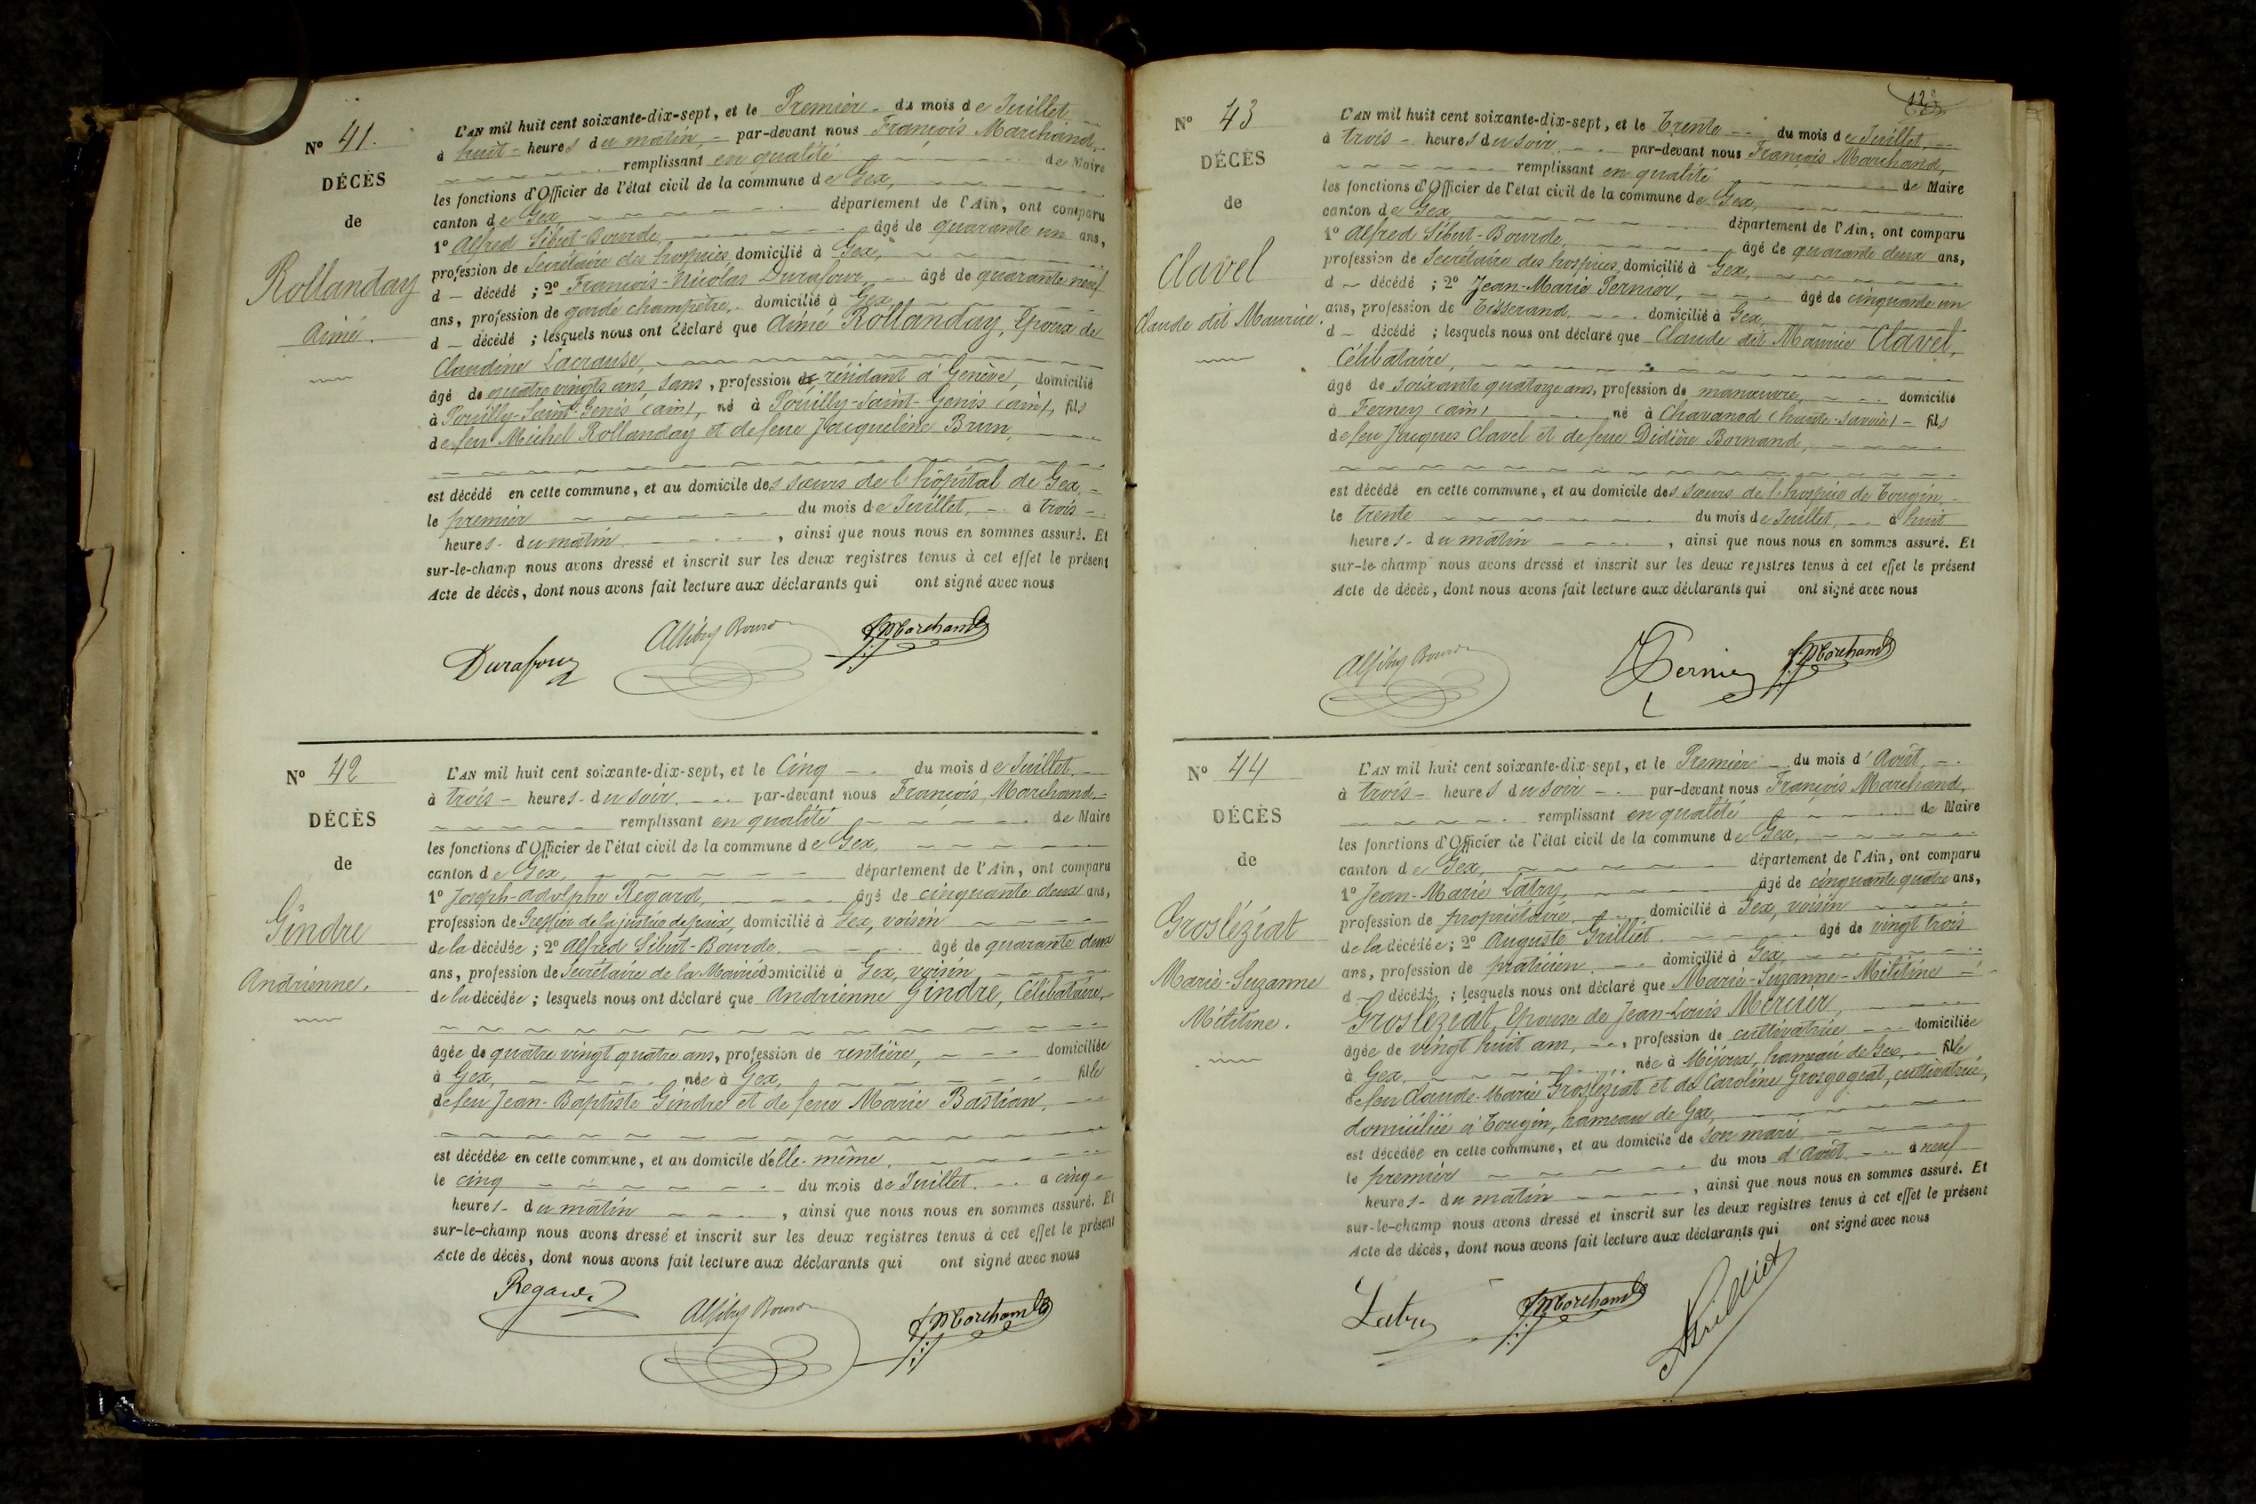 Nº 41.
DÉCÈS
de
Rollanday
Aimé.
L'AN mil huit cent soixante-dix-sept, et le Premier du mois de Juillet
à huit heures du matin, par-devant nous François Marchand,
remplissant en qualité de Maire
les fonctions d'Officier de l'état civil de la commune de Gex,
canton de Gex, département de l'Ain, ont comparu
1º Alfred Sibut-Bourde, âgé de quarante un ans,
profession de Secrétaire des hospices, domicilié à Gex,
d décédé ; 2º François-Nicolas Durafour, âgé de quarante neuf
ans, profession de garde champêtre, domicilié à Gex,
d décédé ; lesquels nous ont déclaré que Aimé Rollanday, Epoux de
Claudine Lacrause,
âgé de quatre vingts ans sans, profession résidant à Genève, domicilié
à Pouilly-Saint-Genis (ain), né à Pouilly-Saint-Genis (ain), fils
de feu Michel Rollanday et de feue Jacqueline Brun,
est décédé en cette commune, et au domicile des sœurs de l'hôpital de Gex,
le premier du mois de Juillet, à trois
heures du matin, ainsi que nous nous en sommes assuré. Et
sur-le-champ nous avons dressé et inscrit sur les deux registres tenus à cet effet le présent
Acte de décès, dont nous avons fait lecture aux déclarants qui ont signé avec nous
Durafour
Marchand
Nº 42
DÉCÈS
de
Gindre
Andrienne.
L'AN mil huit cent soixante-dix-sept, et le Cinq du mois de Juillet
à trois heures du soir, par-devant nous François Marchand,
remplissant en qualité de Maire
les fonctions d'Officier de l'état civil de la commune de Gex,
canton de Gex, département de l'Ain, ont comparu
1º Joseph-Adolphe Regard, âgé de cinquante deux ans,
profession de Greffier de la justice de paix, domicilié à Gex, voisin
de la décédée ; 2º Alfred Sibut-Bourde, âgé de quarante deux
ans, profession de Secrétaire de la Mairie domicilié à Gex, voisin
de la décédée ; lesquels nous ont déclaré que Andrienne Gindre, Célibataire,
âgée de quatre vingt quatre ans, profession de rentière, domiciliée
à Gex, née à Gex, fille
de feu Jean-Baptiste Gindre et de feue Marie Bastian,
est décédée en cette commune, et au domicile d'elle-même,
le cinq du mois de Juillet à cinq
heures du matin, ainsi que nous nous en sommes assuré. Et
sur-le-champ nous avons dressé et inscrit sur les deux registres tenus à cet effet le présent
Acte de décès, dont nous avons fait lecture aux déclarants qui ont signé avec nous
Regard
Marchand
Nº 43
DÉCÈS
de
Clavel
Claude dit Maurice.
L'AN mil huit cent soixante-dix-sept, et le Trente du mois de Juillet,
à trois heures du soir par-devant nous François Marchand,
remplissant en qualité de Maire
les fonctions d'Officier de l'état civil de la commune de Gex,
canton de Gex, département de l'Ain, ont comparu
1º Alfred Sibut-Bourde, âgé de quarante deux ans,
profession de Secrétaire des hospices, domicilié à Gex,
d décédé ; 2º Jean-Marie Pernier, âgé de cinquante un
ans, profession de Tisserand, domicilié à Gex,
d décédé ; lesquels nous ont déclaré que Claude dit Maurice Clavel,
Célibataire,
âgé de soixante quatorze ans, profession de manœuvre, domicilié
à Ferney (ain) né à Chavanod (haute-savoie) fils
de feu Jacques Clavel et de feue Didière Bornand,
est décédé en cette commune, et au domicile des sœurs de l'hospice de Tougin,
le trente du mois de Juillet, à huit
heures du matin, ainsi que nous nous en sommes assuré. Et
sur-le-champ nous avons dressé et inscrit sur les deux registres tenus à cet effet le présent
Acte de décès, dont nous avons fait lecture aux déclarants qui ont signé avec nous
Pernier
Marchand
Nº 44
DÉCÈS
de
Grosléziat
Marie-Suzanne
Mélitine.
L'AN mil huit cent soixante-dix-sept, et le Premier du mois d'Août,
à trois heures du soir par-devant nous François Marchand,
remplissant en qualité de Maire
les fonctions d'Officier de l'état civil de la commune de Gex,
canton de Gex, département de l'Ain, ont comparu
1º Jean-Marie Latry, âgé de cinquante quatre ans,
profession de propriétaire, domicilié à Gex, voisin
de la décédée ; 2º Auguste Grilliet âgé de vingt trois
ans, profession de praticien domicilié à Gex,
d décédé ; lesquels nous ont déclaré que Marie-Suzanne-Mélitine
Grosléziat, Epouse de Jean-Louis Mercier,
âgée de vingt huit ans, profession de cultivatrice domiciliée
à Gex, née à Mijoux, hameau de Gex, fille
de feu Claude-Marie Grosléziat et de Caroline Grosgogeat, cultivatrice,
domiciliée à Tougin, hameau de Gex,
est décédée en cette commune, et au domicile de son mari
le premier du mois d'Août à neuf
heures du matin, ainsi que nous nous en sommes assuré. Et
sur-le-champ nous avons dressé et inscrit sur les deux registres tenus à cet effet le présent
Acte de décès, dont nous avons fait lecture aux déclarants qui ont signé avec nous
Latry
Marchand
Grilliet